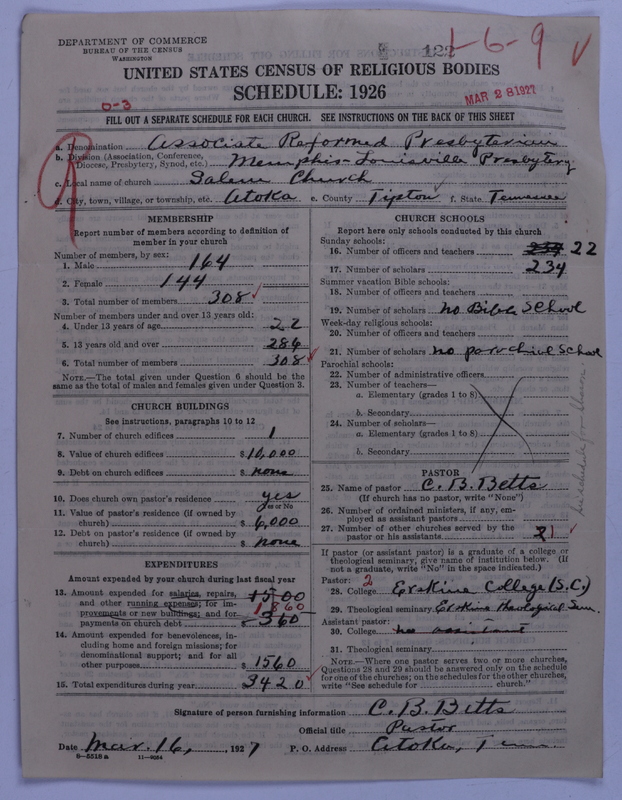 DEPARTMENT OF COMMERCE
BUREAU OF THE CENSUS
WASHINGTON
122
1-6-9 v
UNITED STATES CENSUS OF RELIGIOUS BODIES
SCHEDULE: 1926
0-3
MAR 28 1927
FILL OUT A SEPARATE SCHEDULE FOR EACH CHURCH. SEE INSTRUCTIONS ON THE BACK OF THIS SHEET
a. Denomination Associate Reformed Presbyterian
b. Division (Association, Conference, Diocese, Presbytery, Synod, etc.) Memphis-Louisville Presbytery
c. Local name of church Salem Church
d. City, town, village, or township, etc. Atoka e. County Tipton f. State Tennessee
MEMBERSHIP
Report number of members according to definition of
member in your church
Number of members, by sex:
1. Male 164
2. Female 144
3. Total number of members 308
Number of members under and over 13 years old:
4. Under 13 years of age 22
5. 13 years old and over 286
6. Total number of members 308
NOTE.—The total given under Question 6 should be the
same as the total of males and females given under Question 3.
CHURCH BUILDINGS
See instructions, paragraphs 10 to 12
7. Number of church edifices 1
8. Value of church edifices $ 10,000
9. Debt on church edifices $ none
10. Does church own pastor's residence yes
Yes or No
11. Value of pastor's residence (if owned by
church) $ 6,000
12. Debt on pastor's residence (if owned by
church) $ none
EXPENDITURES
Amount expended by your church during last fiscal year
13. Amount expended for salaries, repairs, 1500
and other running expenses; for im- 1860
provements or new buildings; and for
payments on church debt 360
14. Amount expended for benevolences, in-
cluding home and foreign missions; for
denominational support; and for all
other purposes $ 1560
15. Total expenditures during year $ 3420
CHURCH SCHOOLS
Report here only schools conducted by this church
Sunday schools:
16. Number of officers and teachers 234 22
17. Number of scholars 234
Summer vacation Bible schools:
18. Number of officers and teachers
19. Number of scholars no Bible School
Week-day religious schools:
20. Number of officers and teachers
21. Number of scholars no parochial School
Parochial schools:
22. Number of administrative officers
23. Number of teachers—
a. Elementary (grades 1 to 8)
b. Secondary
24. Number of scholars—
a. Elementary (grades 1 to 8)
b. Secondary
PASTOR
25. Name of pastor C. B. Betts
(If church has no pastor, write "None")
26. Number of ordained ministers, if any, em-
ployed as assistant pastors
27. Number of other churches served by the
pastor or his assistants 1
If pastor (or assistant pastor) is a graduate of a college or
theological seminary, give name of institution below. (If
not a graduate, write "No" in the space indicated.)
Pastor: 2
28. College Erskine College (S.C.)
29. Theological seminary Erskine Theological Sem.
Assistant pastor:
30. College no assistant
31. Theological seminary
NOTE.—Where one pastor serves two or more churches,
Questions 28 and 29 should be answered only on the schedule
for one of the churches; on the schedules for the other churches,
write "See schedule for ... church."
Signature of person furnishing information C. B. Betts
Official title Pastor
Date Mar. 16, , 1927 P. O. Address Atoka, Tenn
8-5518a 11-9084